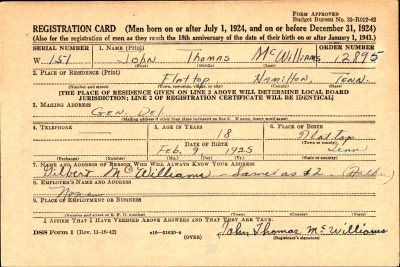 FORM APPROVED
Budget Bureau No. 33-R012-42
REGISTRATION CARD (Men born on or after July 1, 1924, and on or before December 31, 1924)
(Also for the registration of men as they reach the 18th anniversary of the date of their birth on or after January 1, 1943.)
SERIAL NUMBER 1. NAME (Print) ORDER NUMBER
W 151 John Thomas McWilliams 12895
(First) (Middle) (Last)
2. PLACE OF RESIDENCE (Print)
Flattop Hamilton, Tenn.
(THE PLACE OF RESIDENCE GIVEN ON LINE 2 ABOVE WILL DETERMINE LOCAL BOARD
JURISDICTION; LINE 2 OF REGISTRATION CERTIFICATE WILL BE IDENTICAL)
3. MAILING ADDRESS
Gen. Del.
4. TELEPHONE 5. AGE IN YEARS 6. PLACE OF BIRTH
18 Flat top
DATE OF BIRTH (Town or county)
Feb. 9 1925 Tenn
(Exchange) (Number) (Mo.) (Day) (Yr.) (State or country)
7. NAME AND ADDRESS OF PERSON WHO WILL ALWAYS KNOW YOUR ADDRESS
McWilliams - Same as #2
8. EMPLOYER'S NAME AND ADDRESS
None
9. PLACE OF EMPLOYMENT OR BUSINESS
(Number and street or R. F. D. number) (Town) (County) (State)
I AFFIRM THAT I HAVE VERIFIED ABOVE ANSWERS AND THAT THEY ARE TRUE.
DSS Form 1 (Rev. 11-16-42) (OVER) John Thomas McWilliams
(Registrant's signature)